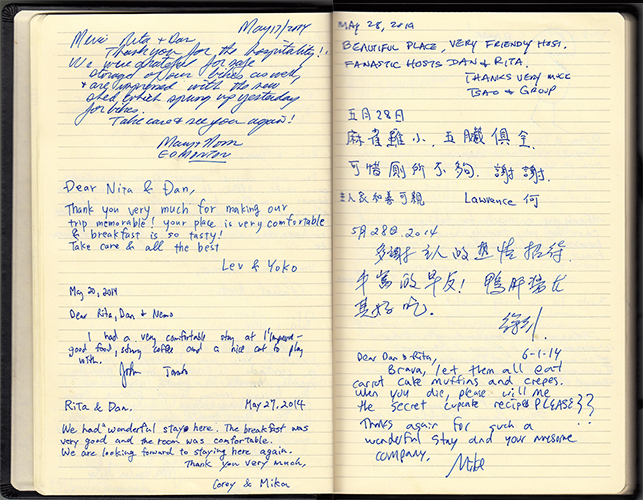 May 17/2014
Merci Rita + Dan
Thank you for the hospitality!
We were grateful for safe
storage of our bikes as well
+ are impressed with the new
shed which sprung up yesterday
for bikes.
Take care & see you again!
EDMONTON
Dear Nita & Dan,
Thank you very much for making our
trip memorable! your place is very comfortable
& breakfast is so tasty!
Take care & all the best
Lev & Yoko
May 20, 2014
Dear Rita, Dan & Nemo
I had a very comfortable stay at
good food, strong coffee and a nice cat to play
with.
John
Rita & Dan.
May 27, 2014
We had a wonderful stay here. The breakfast was
very good and the room was comfortable.
We are looking forward to staying here again.
Thank you very much,
Corey & Mika
MAY 28, 2014
BEAUTIFUL PLACE, VERY FRIENDLY HOST.
FANASTIC HOSTS DAN & RITA.
THANKS VERY MUCH
BAO & GROUP
五月28日
麻雀雖小, 五臟俱全,
可惜厠所不夠. 謝謝.
主人家和善可親
Lawrence 何
5月28日.2014
多謝主人的熱情招待.
丰富的早点! 鴨肝
真好吃.
6-1-14
Dear Dan & Rita,
Brava, let them all eat
carrot cake muffins and crepes.
When you die, please will me
the secret cupcake recipes PLEASE!!
Thanks again for such a
wonderful stay and your awesome
company.
Mike